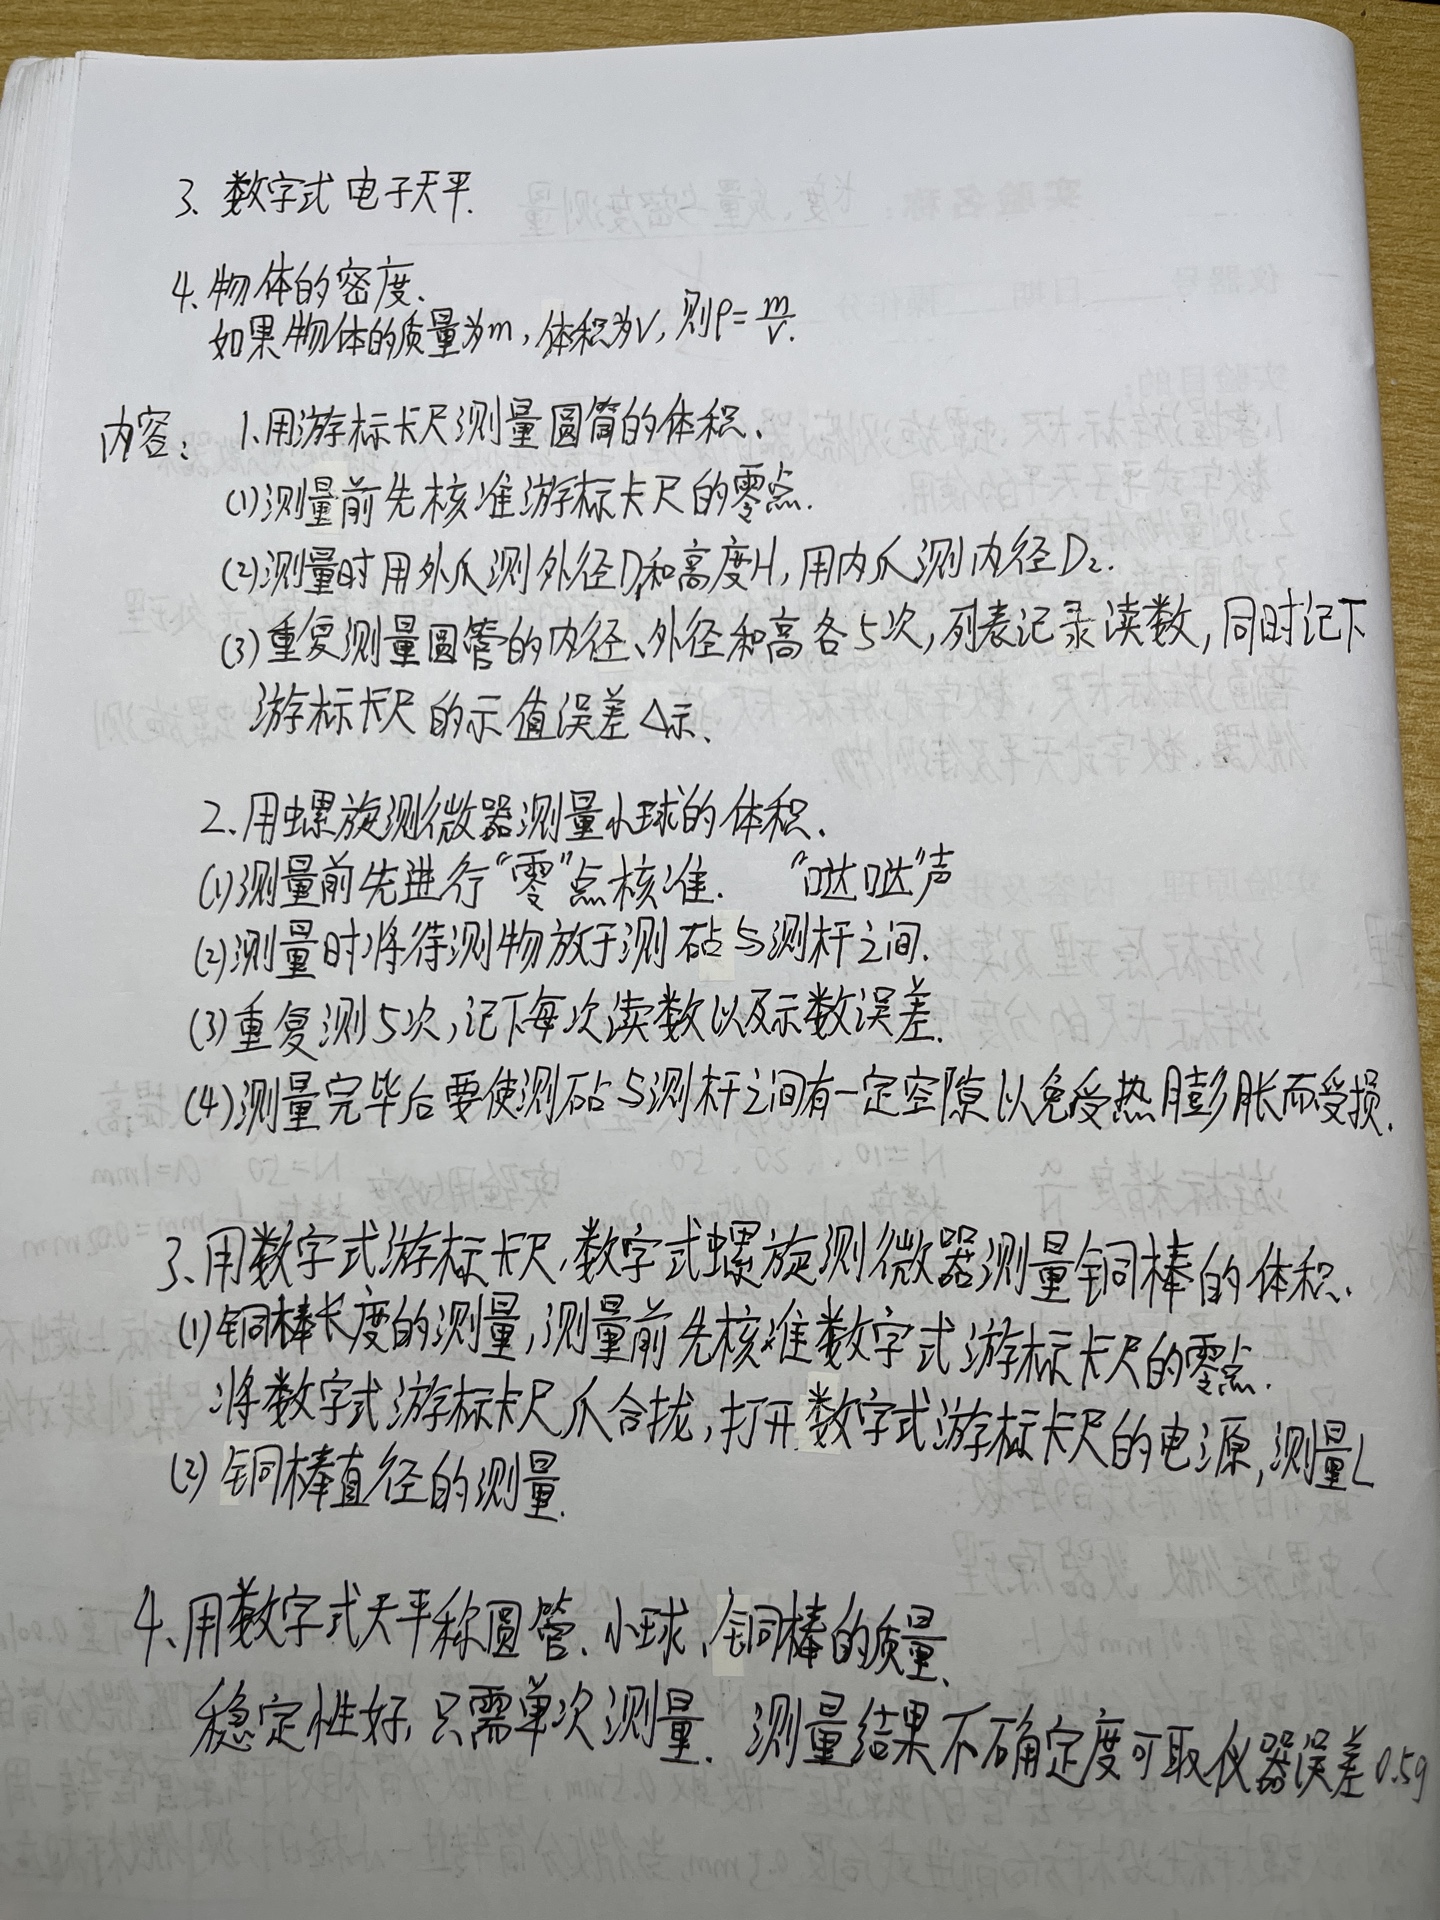 3、数字式电子天平.
4、物体的密度、
如果物体的质量为m,体积为V,则ρ=m/V.
内容: 1、用游标卡尺测量圆筒的体积、
(1)测量前先核准游标卡尺的零点.
(2)测量时用外爪测外径D₁和高度H,用内爪测内径D₂.
(3)重复测量圆管的内径、外径和高各5次,列表记录读数,同时记下
游标卡尺的示值误差Δ示、
2、用螺旋测微器测量小球的体积、
(1)测量前先进行“零”点核准. “哒哒”声
(2)测量时将待测物放于测砧与测杆之间.
(3)重复测5次,记下每次读数以及示数误差.
(4)测量完毕后要使测砧与测杆之间有一定空隙以免受热膨胀而受损.
3、用数字式游标卡尺、数字式螺旋测微器测量铜棒的体积、
(1)铜棒长度的测量,测量前先核准数字式游标卡尺的零点.
将数字式游标卡尺爪合拢,打开数字式游标卡尺的电源,测量L
(2)铜棒直径的测量.
4、用数字式天平称圆管、小球、铜棒的质量.
稳定性好,只需单次测量. 测量结果不确定度可取仪器误差0.5g